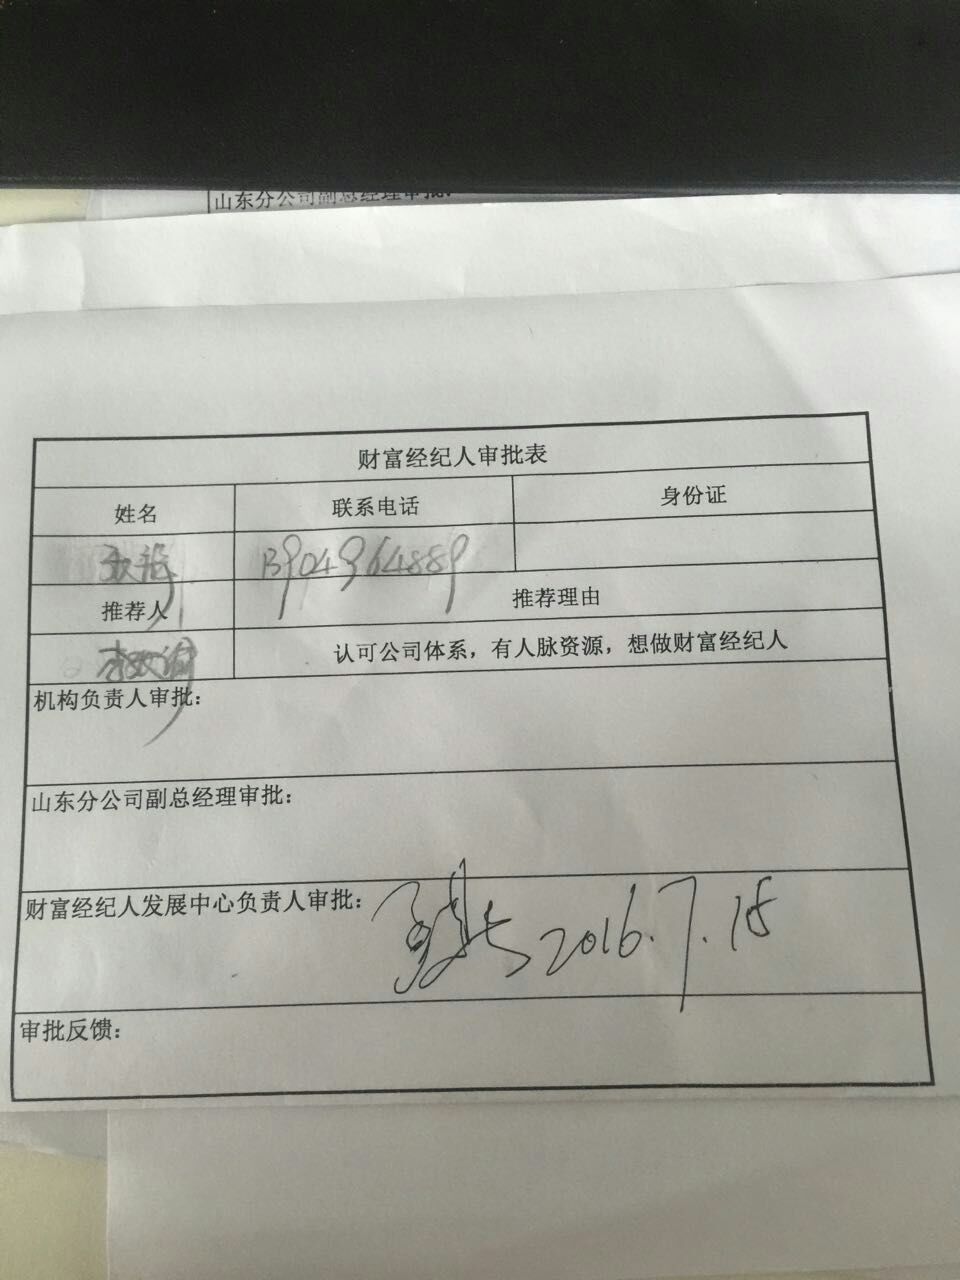 山东分公司副总经理审批:
财富经纪人审批表
姓名 联系电话 身份证
13904964889
推荐人 推荐理由
认可公司体系，有人脉资源，想做财富经纪人
机构负责人审批：
山东分公司副总经理审批：
财富经纪人发展中心负责人审批： 2016.7.18
审批反馈：